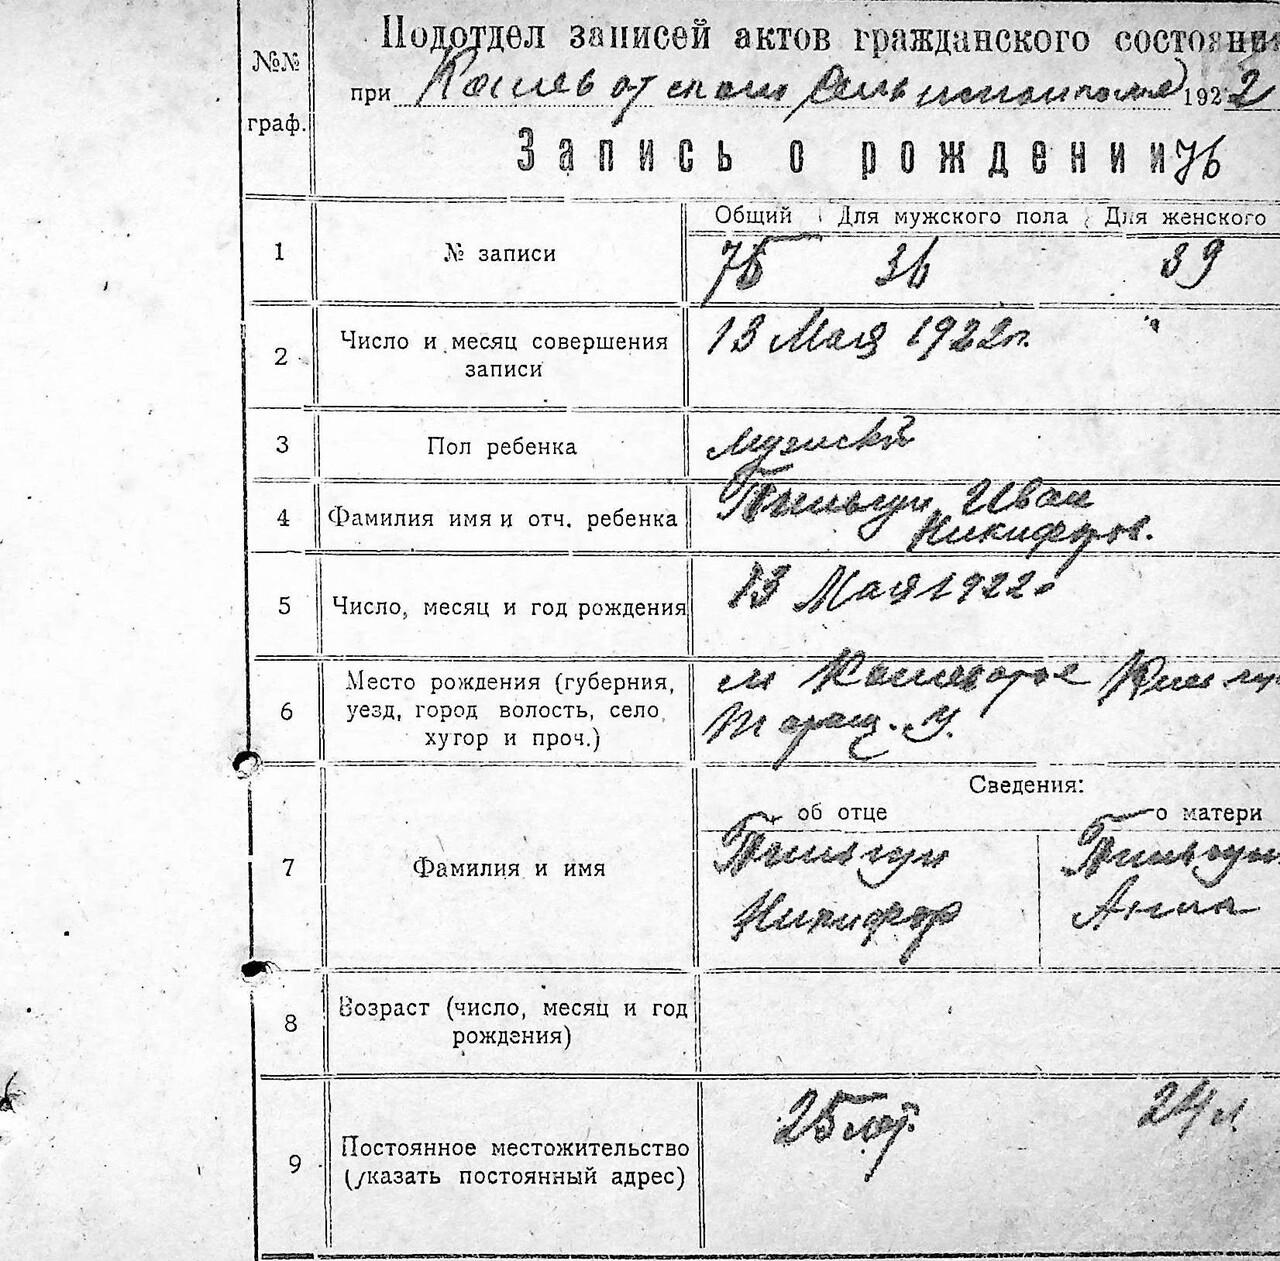 Подотдел записей актов гражданского состояния
№№ граф.
при 1922
Запись о рождении 76
Общий Для мужского пола Для женского
1 № записи 75 36 39
2 Число и месяц совершения
записи
13 Мая 1922 г.
3 Пол ребенка
4 Фамилия имя и отч. ребенка Иван
Никифоров.
5 Число, месяц и год рождения 13 Мая 1922 г
6 Место рождения (губерния,
уезд, город волость, село
хутор и проч.)
м
Таращ. у.
Сведения:
об отце о матери
7 Фамилия и имя
Никифор Анна
8 Возраст (число, месяц и год
рождения)
9 Постоянное местожительство
(указать постоянный адрес)
25 лет. 24 л.